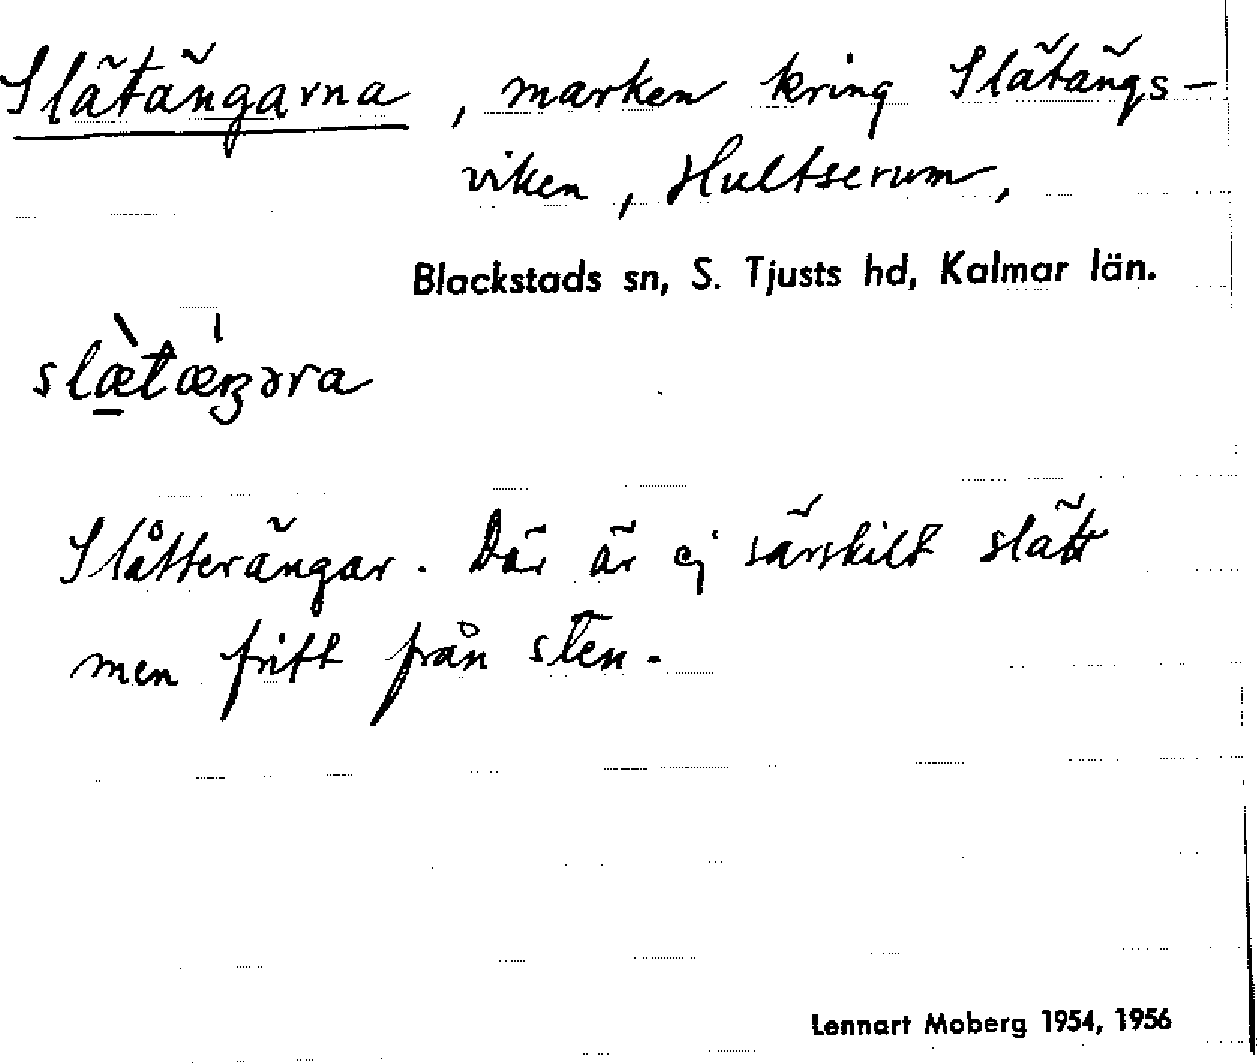 Slätängarna, marken kring Slätängs-
viken, Hultserum,
Blackstads sn, S. Tjusts hd, Kalmar län.
slæ̀tæŋəra
Slåtterängar. Där är ej särskilt slätt
men fritt från sten.
Lennart Moberg 1954, 1956